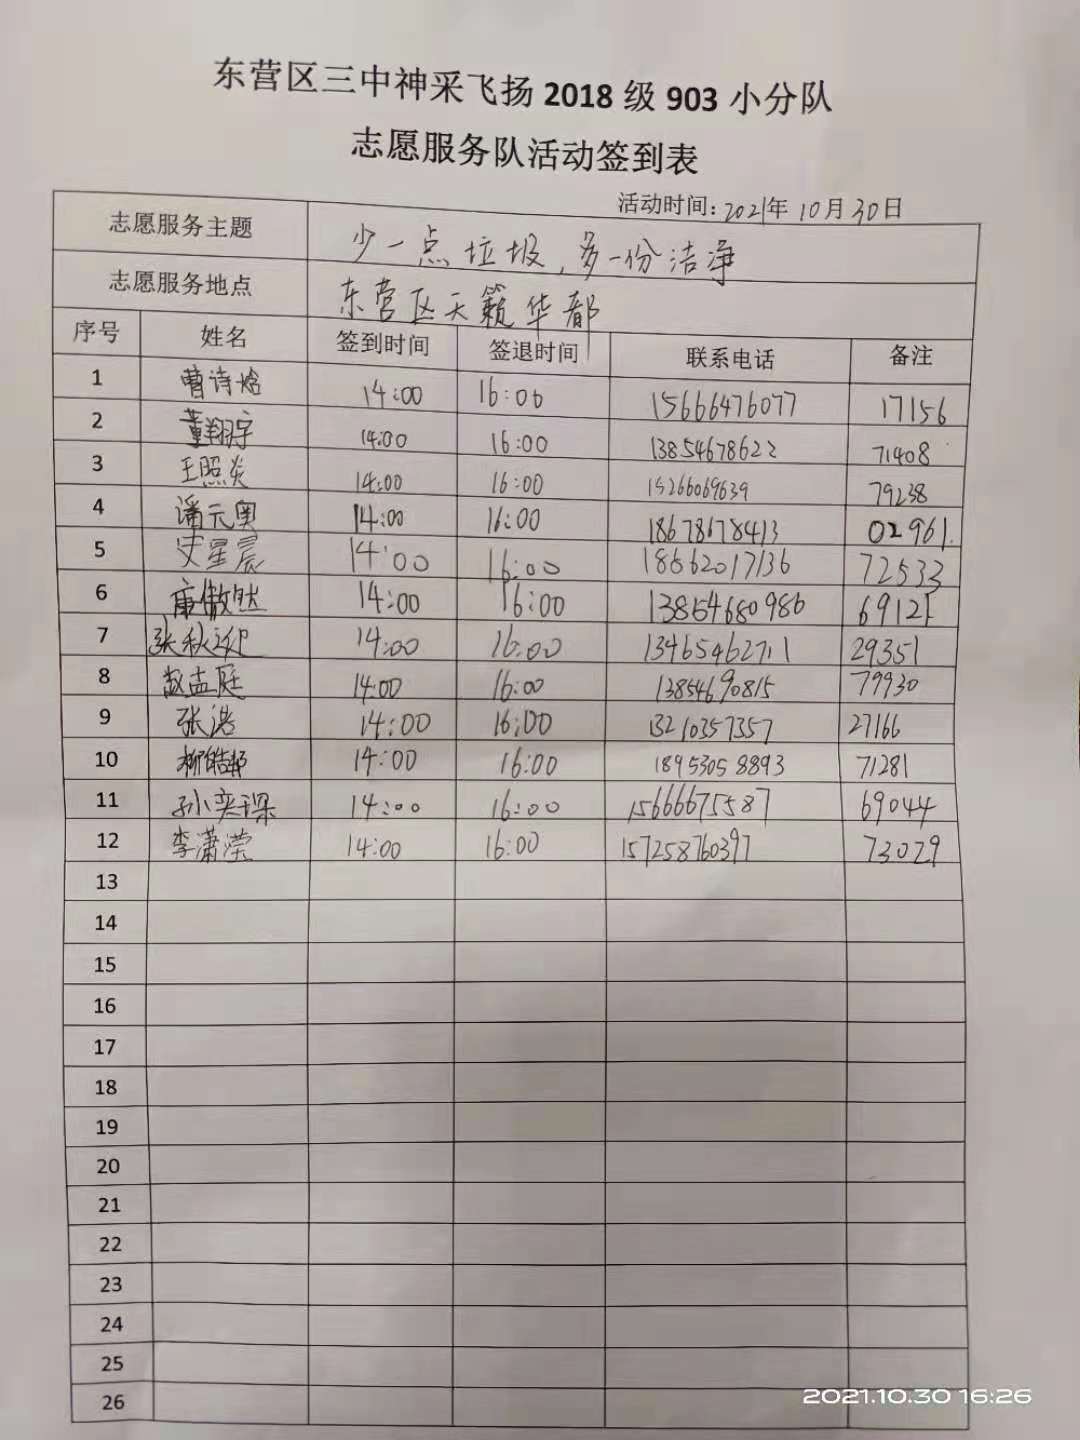 东营区三中神采飞扬 2018 级 903 小分队
志愿服务队活动签到表
活动时间:2021年10月30日
志愿服务主题 少一点垃圾,多一份洁净
志愿服务地点 东营区天籁华都
序号 姓名 签到时间 签退时间 联系电话 备注
1 曹诗焓 14:00 16:00 15666476077 17156
2 董翔宇 14:00 16:00 13854678622 71408
3 王照炎 14:00 16:00 15266069639 79238
4 潘元奥 14:00 16:00 18678678413 02961.
5 史星晨 14:00 16:00 18662017136 72533
6 康傲然 14:00 16:00 13854680986 69121
7 张秋迎 14:00 16:00 13465462711 29351
8 赵孟庭 14:00 16:00 13854690815 79930
9 张浩 14:00 16:00 13210357357 27166
10 14:00 16:00 18953058893 71281
11 孙奕琛 14:00 16:00 15666675587 69044
12 李潇滢 14:00 16:00 157258760397 73029
13
14
15
16
17
18
19
20
21
22
23
24
25
26
2021.10.30 16:26